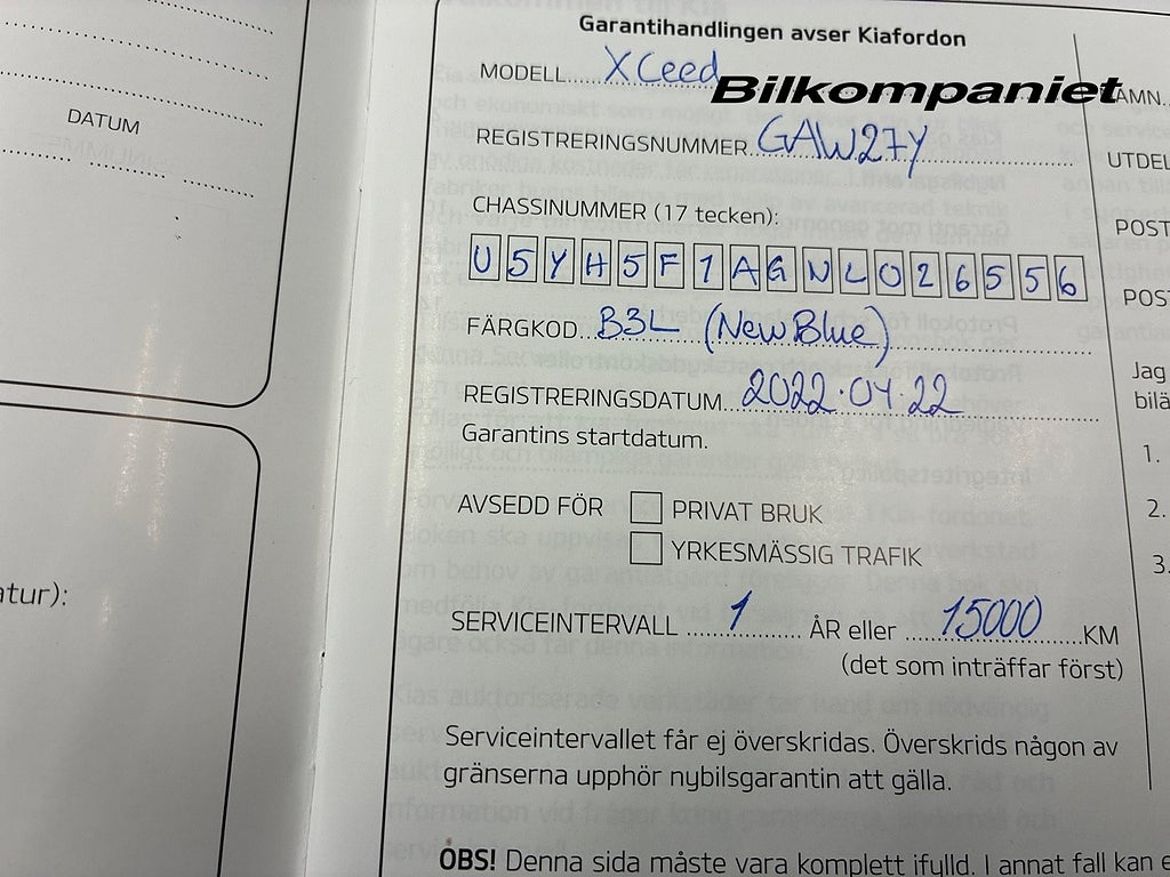 DATUM
atur):
Garantihandlingen avser Kiafordon
MODELL XCeed
Bilkompaniet
REGISTRERINGSNUMMER GAW27Y
CHASSINUMMER (17 tecken):
U5YH5F1AGNL026556
FÄRGKOD B3L (New Blue)
REGISTRERINGSDATUM 2022.04.22
Garantins startdatum.
AVSEDD FÖR PRIVAT BRUK
YRKESMÄSSIG TRAFIK
SERVICEINTERVALL 1 ÅR eller 15000 KM
(det som inträffar först)
Serviceintervallet får ej överskridas. Överskrids någon av
gränserna upphör nybilsgarantin att gälla.
OBS! Denna sida måste vara komplett ifylld. I annat fall kan e
ÄMN.
UTDEL
POST
POS
Jag
bilä
1.
2.
3.